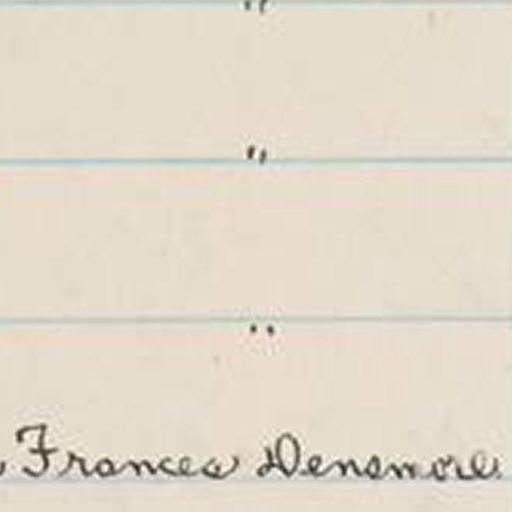 "
"
"
Frances Densmore